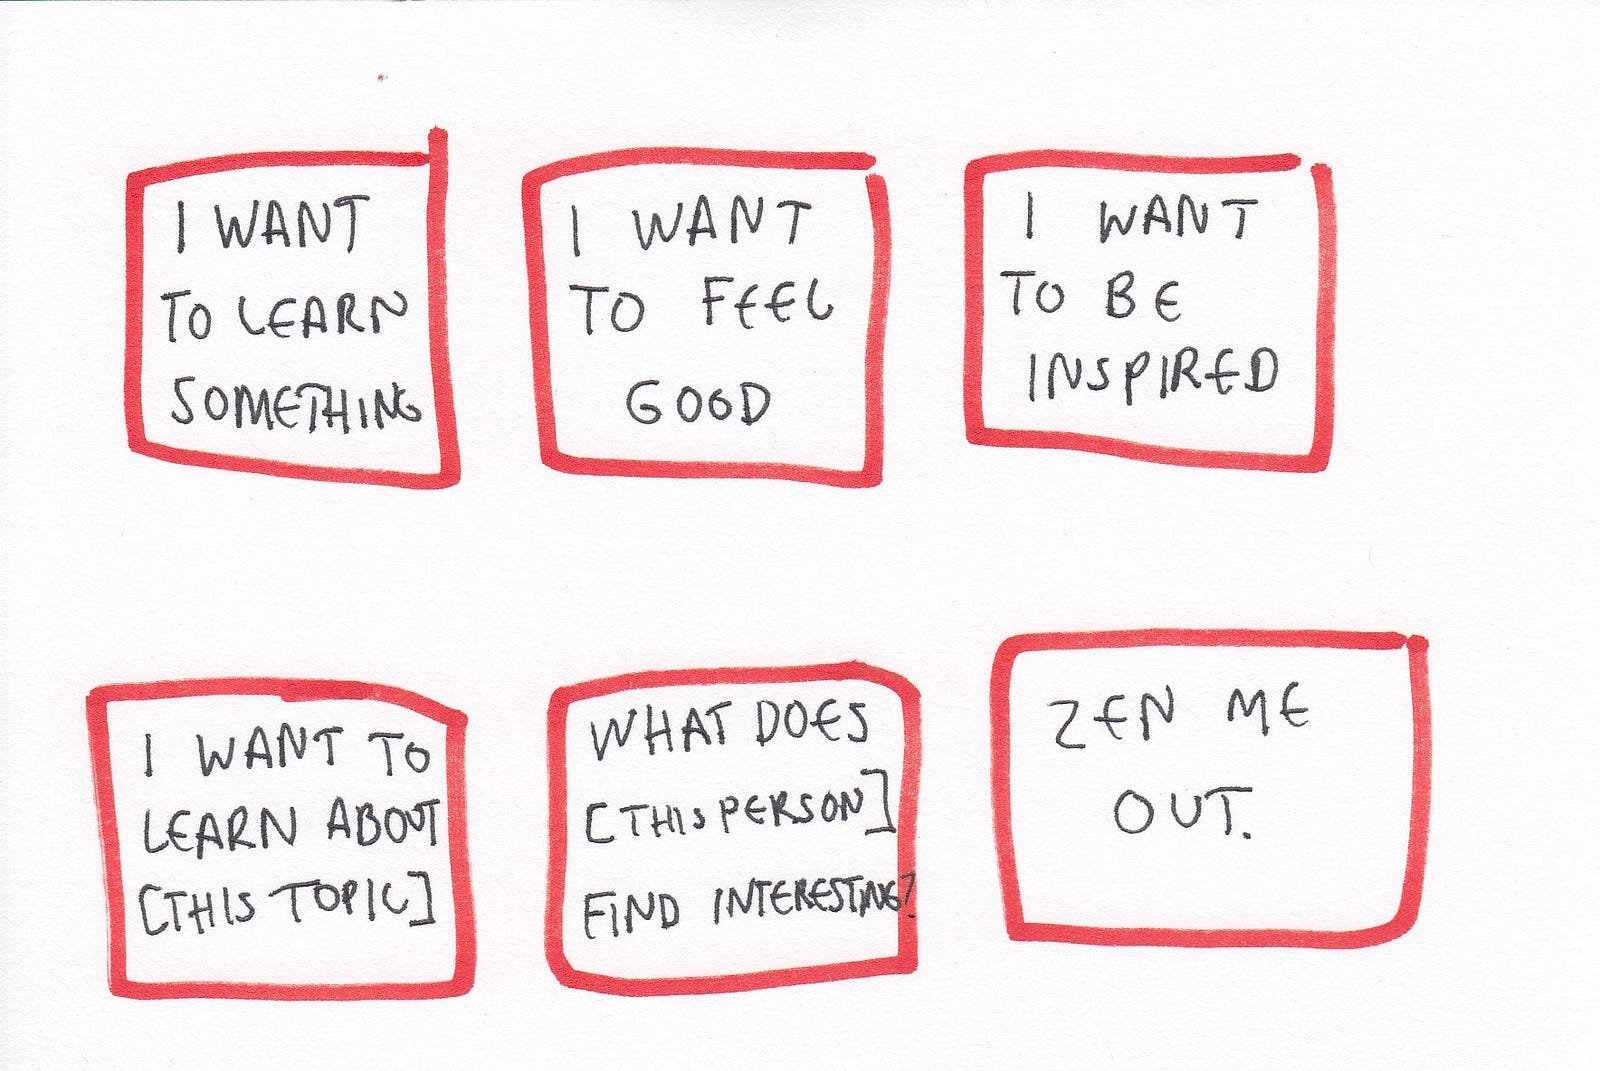 I WANT
TO LEARN
SOMETHING
I WANT
TO FEEL
GOOD
I WANT
TO BE
INSPIRED
I WANT TO
LEARN ABOUT
[THIS TOPIC]
WHAT DOES
[THIS PERSON]
FIND INTERESTING?
ZEN ME
OUT.